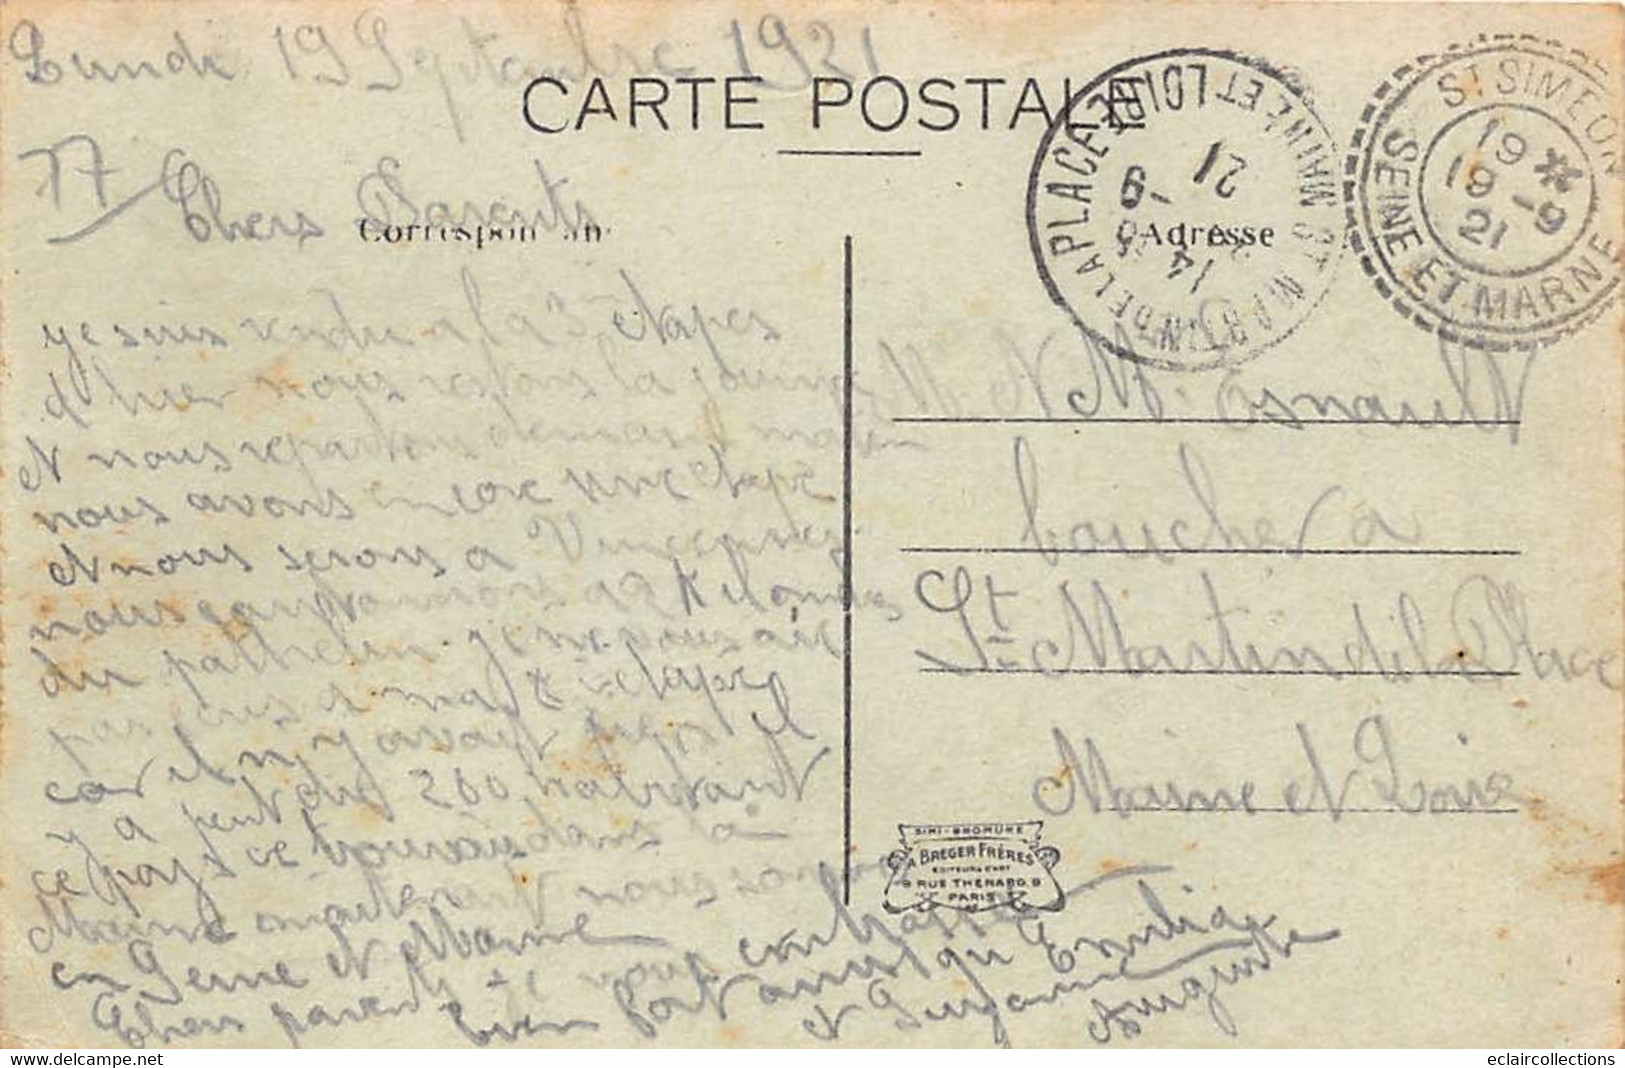 Lundi 19 Septembre 1921
CARTE POSTALE
77
Chers Parents
Correspondan
Adresse
ST SIMEON
19 *
19 -9
21
SEINE ET MARNE
ST MARTIN DE LA PLACE
MAINE ET LOIRE
14
20 -9
21
je suis rendu a la 3e étapes
d'hier nous restons la journee
et nous repartons demain matin
nous avons encore une etape
et nous serons a Vincennes
nous a 12 Kilometres
du je ne pouvais
pas a ma 2e etape
car il n'y avait il
y a peut 200 habitant
ce pays ce trouve dans la
Marne maintenant nous sommes
en Seine et Marne
Chers parents je vous embrasse
bien fort ainsi qu' Emilia
et Suzanne
Auguste
Mr et Mme Esnault
boucher a
St Martin de la Place
Maine et Loire
SIMI-BROMURE
A BREGER FRÈRES
EDITEURS D'ART
9 RUE THENARD 9
PARIS
eclaircollections